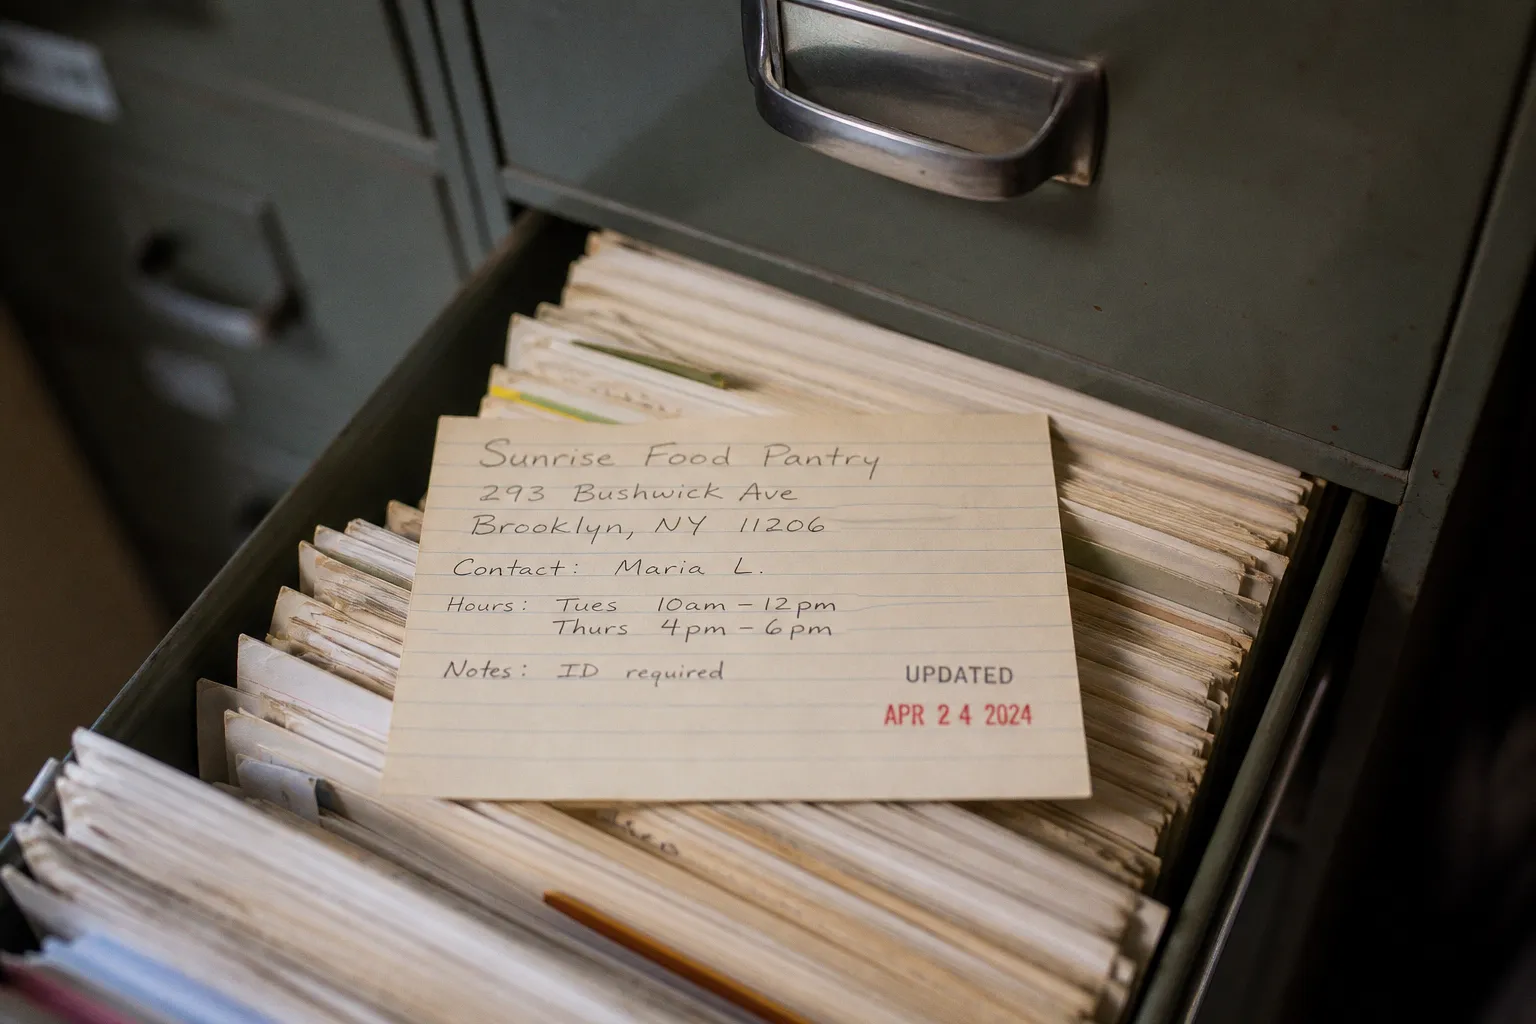 Sunrise Food Pantry
293 Bushwick Ave
Brooklyn, NY 11206
Contact: Maria L.
Hours: Tues 10am - 12pm
Thurs 4pm - 6pm
Notes: ID required
UPDATED
APR 24 2024